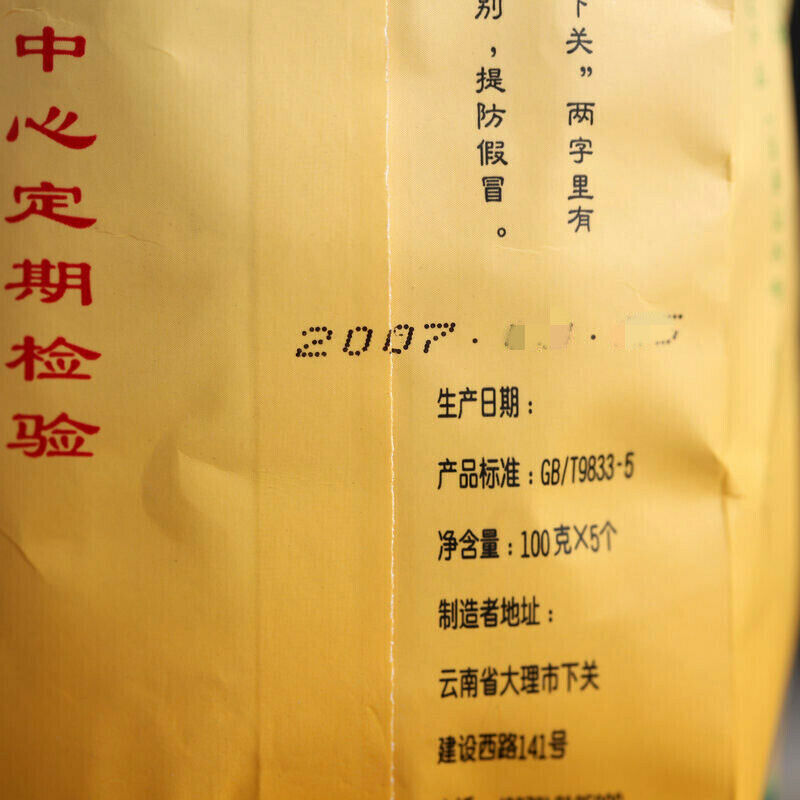 下关”两字里有
别，提防假冒。
中心定期检验
2007.
生产日期：
产品标准：GB/T9833-5
净含量：100克×5个
制造者地址：
云南省大理市下关
建设西路141号